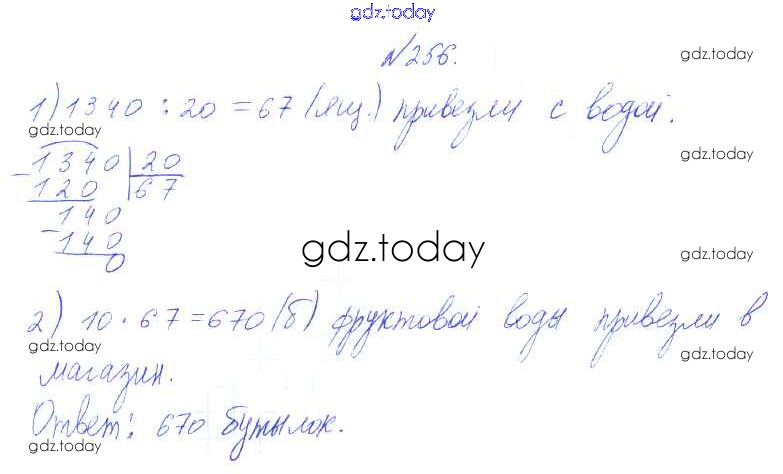 gdz.today
№256.
gdz.today
1) 1340 : 20 = 67 (ящ.) привезли с водой.
gdz.today
gdz.today
- 1340 | 20
120 | 67
- 140
140
0
gdz.today
gdz.today
2) 10 · 67 = 670 (б) фруктовой воды привезли в
gdz.today
gdz.today
магазин.
Ответ: 670 бутылок.
gdz.today
gdz.today